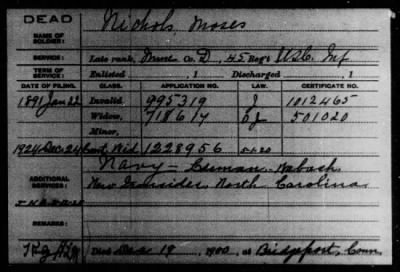 DEAD
NAME OF SOLDIER: Nichols, Moses
SERVICE: Late rank, Co. D, 45 Reg't U.S.C. Inf
TERM OF SERVICE: Enlisted , 1 Discharged , 1
DATE OF FILING. CLASS. APPLICATION NO. LAW. CERTIFICATE NO.
1891 Jan 22 Invalid, 995319 J 1012465
Widow, 718617 501020
Minor,
1924 Dec 24 Cont Wid 1228956
ADDITIONAL SERVICES: Navy Wabash
New Ironsides, North Carolina
REMARKS:
Died Dec 19, 1900, at Bridgeport, Conn